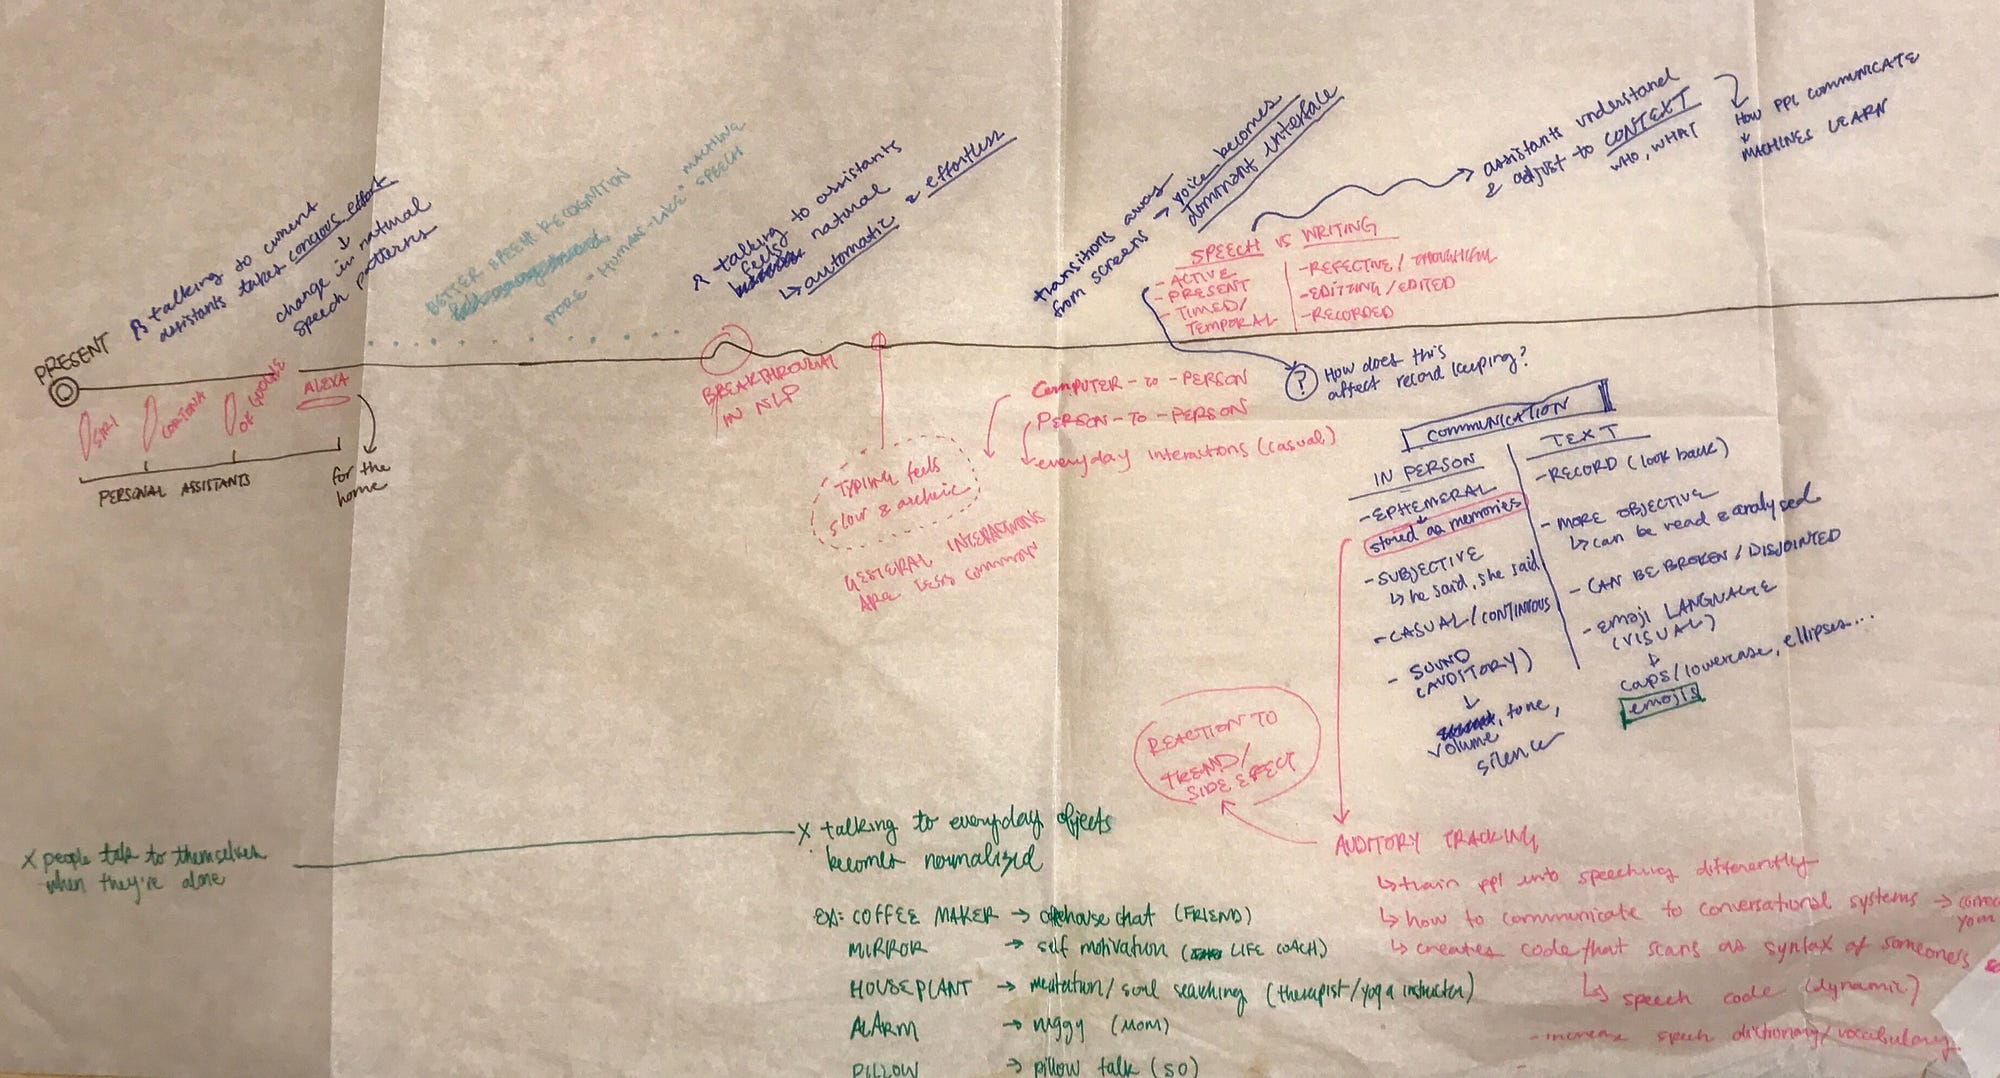 PRESENT
talking to current
assistants takes concious effort
change in natural
speech patterns
SIRI
CORTONA
OK GOOGLE
ALEXA
PERSONAL ASSISTANTS
for the
home
BETTER SPEECH RECOGNITION
MORE "HUMAN-LIKE" MACHINE
SPEECH
talking to assistants
feels natural
↳ automatic & effortless
BREAKTHROUGH
IN NLP
TYPING feels
slow & archeic
GESTERAL INTERACTIONS
ARE LESS common
transitions away
from screens → voice becomes
dominant interface
COMPUTER-TO-PERSON
PERSON-TO-PERSON
everyday interactions (casual)
SPEECH VS WRITING
- ACTIVE
- PRESENT
- TIMED/
TEMPORAL
- REFECTIVE/THOUGHTFUL
- EDITTING/EDITED
- RECORDED
assistants understand
& adjust to CONTEXT
WHO, WHAT
HOW PPL COMMUNICATE
MACHINES LEARN
? How does this
affect record keeping?
COMMUNICATION
IN PERSON
- EPHEMERAL
stored as memories
- SUBJECTIVE
↳ he said, she said
- CASUAL/CONTINUOUS
- SOUND
(AUDITORY)
↓
, tone,
volume
silence
TEXT
- RECORD (look back)
- MORE OBJECTIVE
↳ can be read & analysed
- CAN BE BROKEN/DISJOINTED
- EMOJI LANGUAGE
(VISUAL)
↓
caps/lowercase, ellipses...
emojis
REACTION TO
TREND/
SIDE EFFECT
AUDITORY TRACKING
↳ train ppl into speeching differently
↳ how to communicate to conversational systems →
↳ creates code that scans as syntax of someones
↳ speech code (dynamic)
- increase speech dictionary/vocabulary
X people talk to themselves
when they're alone
X talking to everyday objects
becomes normalized
EX: COFFEE MAKER → coffeehouse chat (FRIEND)
MIRROR → self motivation (LIFE COACH)
HOUSEPLANT → meditation/soul searching (therapist/yoga instructor)
ALARM → naggy (MOM)
PILLOW → pillow talk (SO)